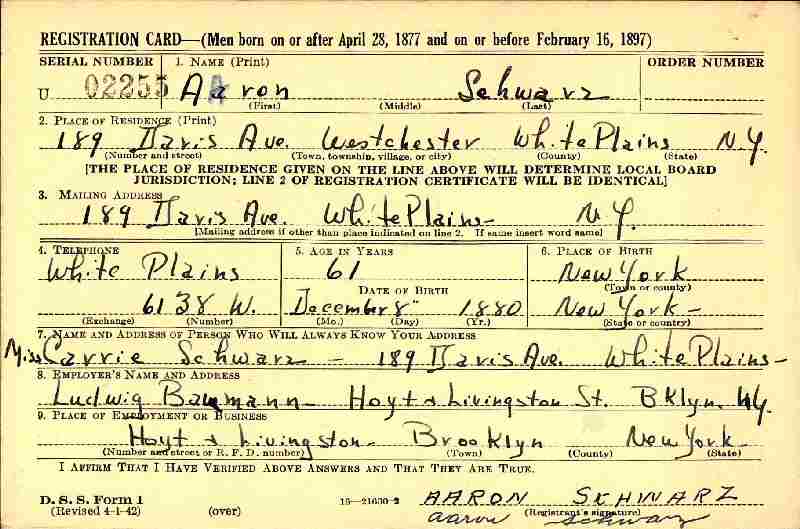 REGISTRATION CARD—(Men born on or after April 28, 1877 and on or before February 16, 1897)
SERIAL NUMBER 1. NAME (Print) ORDER NUMBER
U 02255 Aaron Schwarz
(First) (Middle) (Last)
2. PLACE OF RESIDENCE (Print)
189 Davis Ave. Westchester White Plains N.Y.
(Number and street) (Town, township, village, or city) (County) (State)
[THE PLACE OF RESIDENCE GIVEN ON THE LINE ABOVE WILL DETERMINE LOCAL BOARD
JURISDICTION; LINE 2 OF REGISTRATION CERTIFICATE WILL BE IDENTICAL]
3. MAILING ADDRESS
189 Davis Ave. White Plains- N.Y.
[Mailing address if other than place indicated on line 2. If same insert word same]
4. TELEPHONE 5. AGE IN YEARS 6. PLACE OF BIRTH
White Plains 61 New York
DATE OF BIRTH (Town or county)
6138 W. December 8" 1880 New York-
(Exchange) (Number) (Mo.) (Day) (Yr.) (State or country)
7. NAME AND ADDRESS OF PERSON WHO WILL ALWAYS KNOW YOUR ADDRESS
Miss Carrie Schwarz - 189 Davis Ave. White Plains-
8. EMPLOYER'S NAME AND ADDRESS
Ludwig Baumann- Hoyt & Livingston St. Bklyn. N.Y.
9. PLACE OF EMPLOYMENT OR BUSINESS
Hoyt & Livingston- Brooklyn New York-
(Number and street or R. F. D. number) (Town) (County) (State)
I AFFIRM THAT I HAVE VERIFIED ABOVE ANSWERS AND THAT THEY ARE TRUE.
D. S. S. Form 1 16—21630-2 AARON SCHWARZ
(Revised 4-1-42) (over) (Registrant's signature)
aaron schwarz